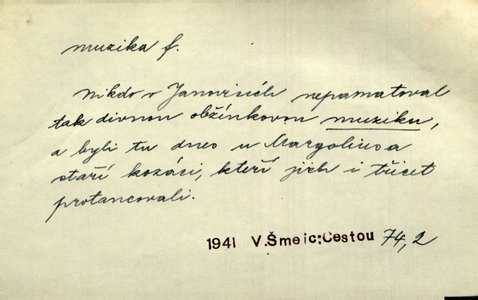 muzika f.
Nikdo v Janovicích nepamatoval
tak divnou obžínkovou muziku,
a byli tu dnes u Margoliusa
staří kozáci, kteří jich i třicet
protancovali.
1941 V.Šmejc:Cestou 74,2